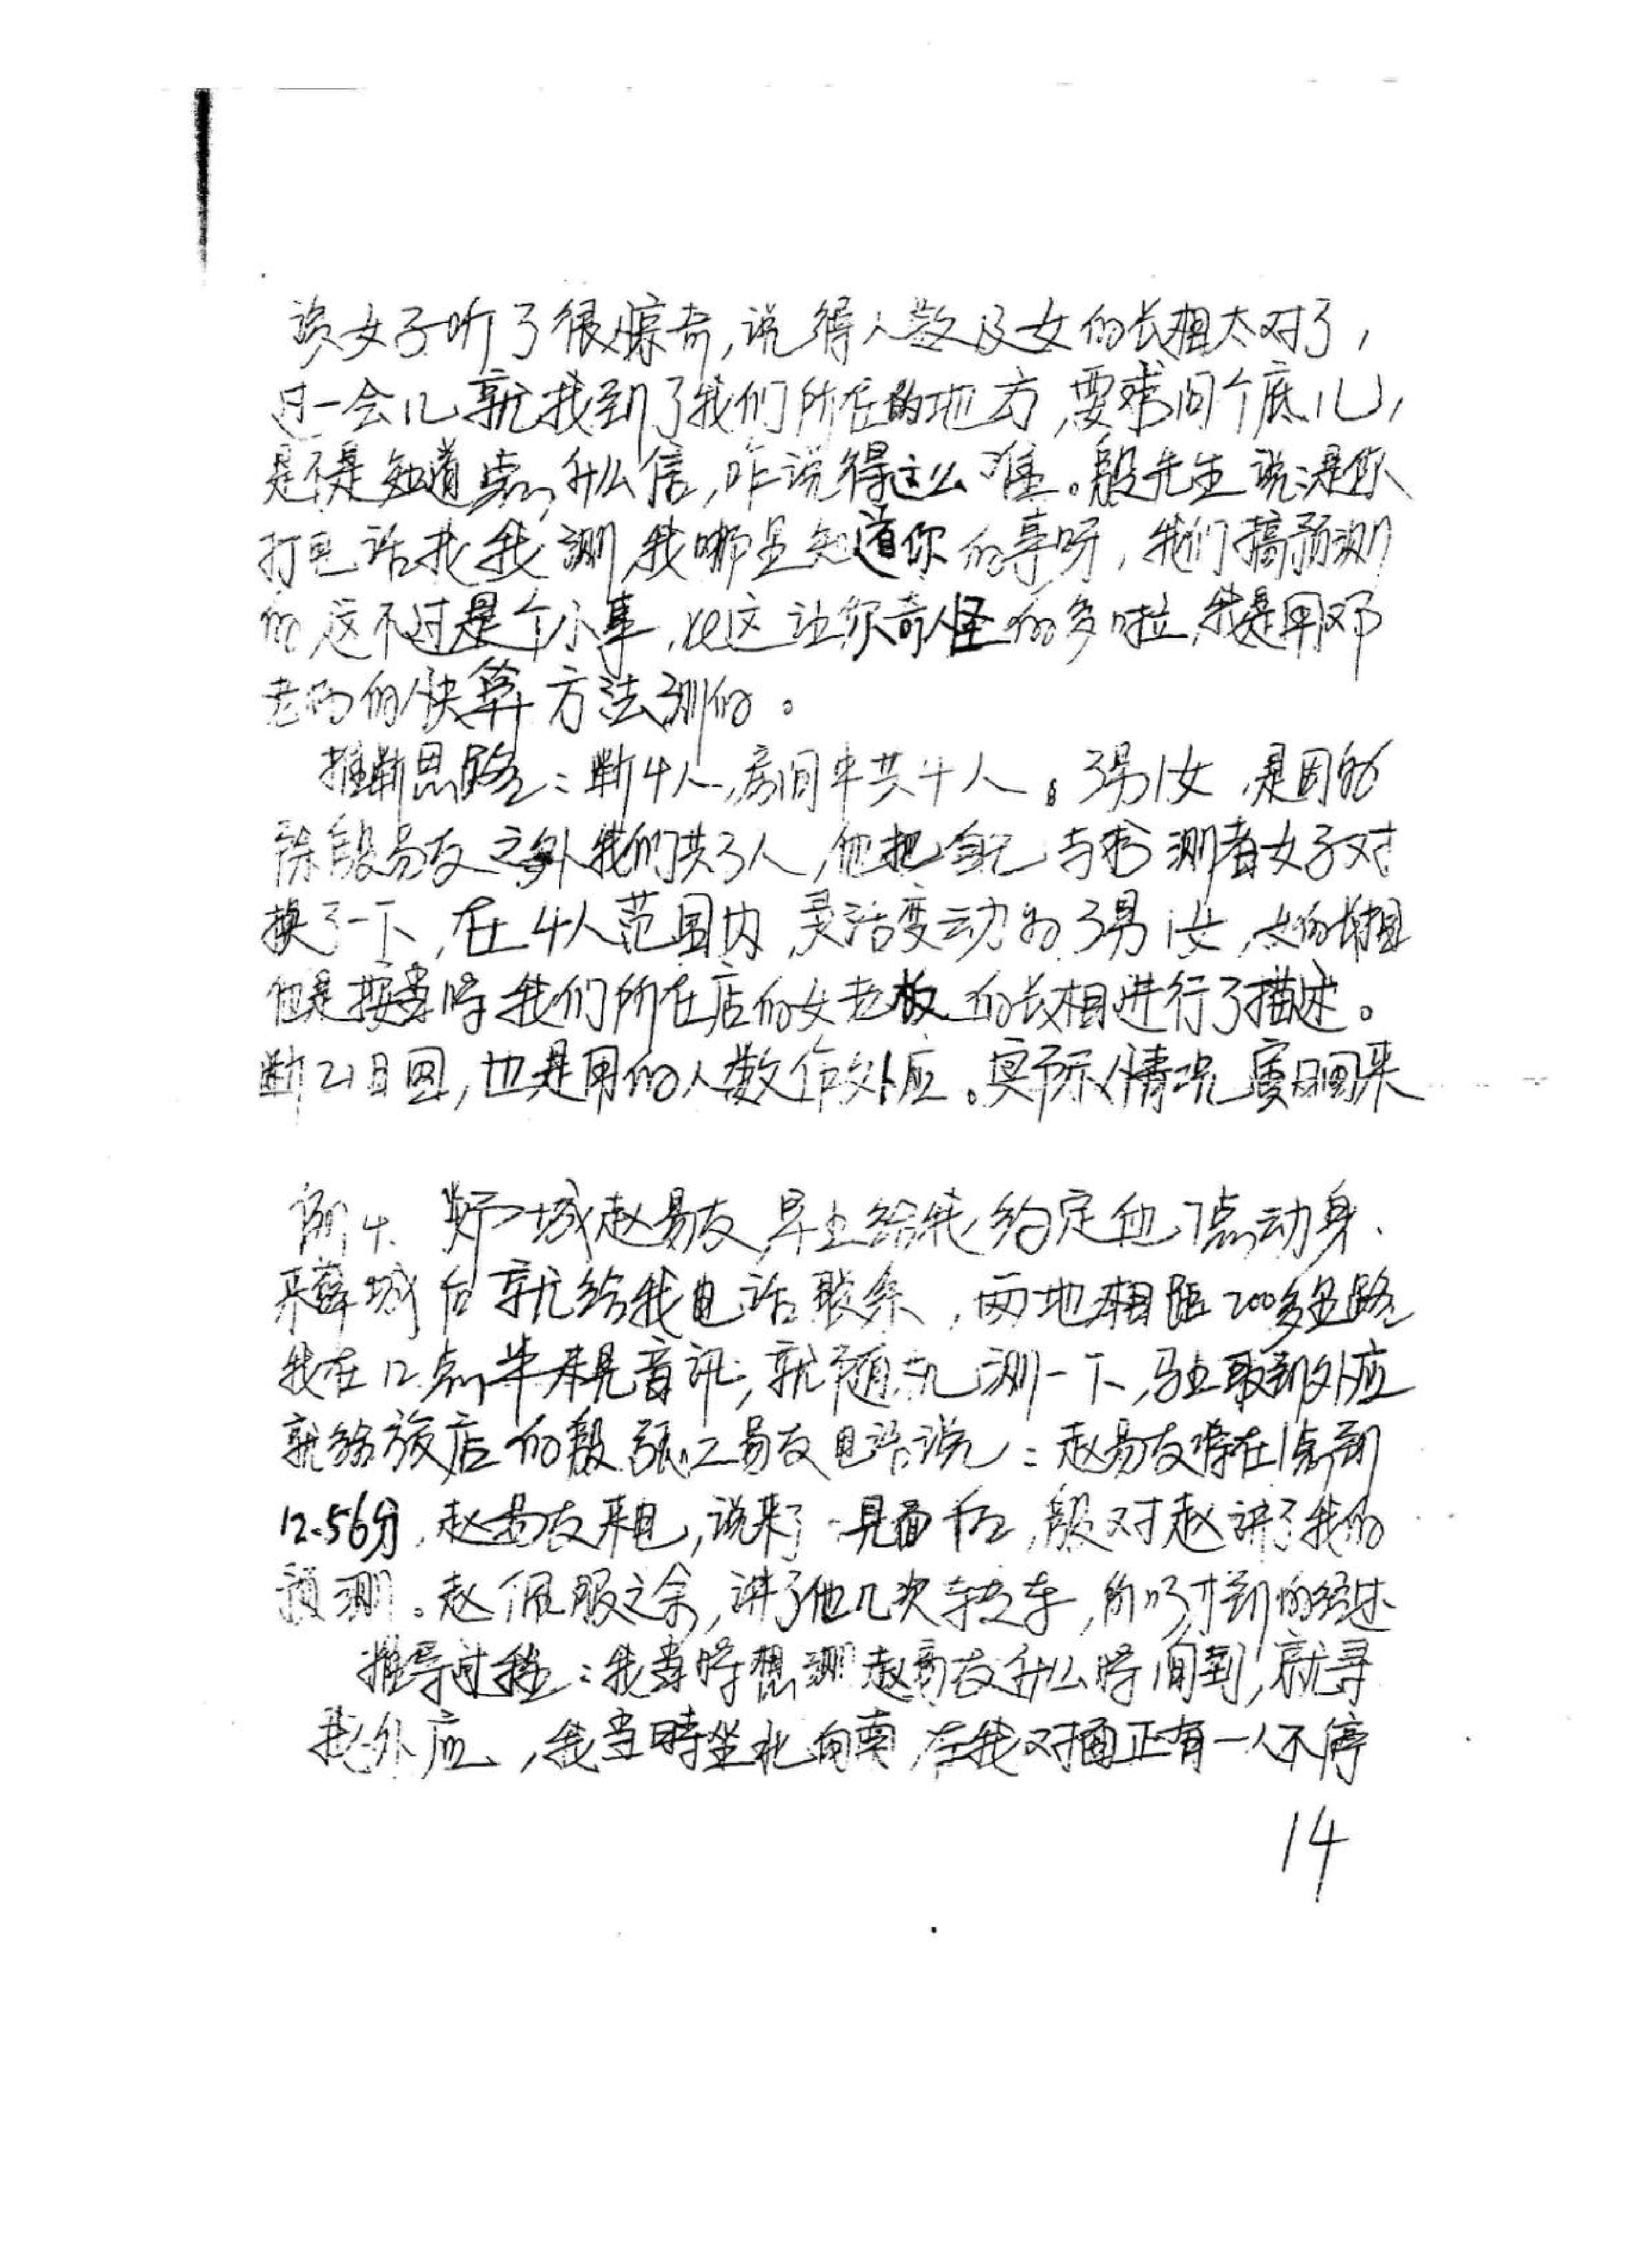 该女子听了很惊奇,说得人数及女的长相太对了,
过一会儿就找到了我们所在的地方,要求问个底儿,
是不是知道点什么信,咋说得这么准。殷先生说:是你
打电话找我测,我哪里知道你的事呀,我们搞预测
的,这不过是个小事,比这让你奇怪的多啦,我是用邓
老师的快算方法测的。
推断思路:断4人,房间中共4人。3男1女,是因为
除段易友之外我们共3人,他把自己与求测者女子对
换了一下,在4人范围内,灵活变动为3男1女,女的长相
他是按当时我们所在店的女老板的长相进行了描述。
断21日回,也是用的人数作外应。实际情况寅日回来
例4. 城赵易友,早上给我约定他7点动身、
来薛城后就给我电话联系,两地相距200多里路
我在12点半未见音讯;就随机测一下,马上取到外应
就给旅店的殷.张二易友电话说:赵易友将在1点到
12.56分,赵易友来电,说来了.见面后,殷对赵讲了我的
预测。赵佩服之余,讲了他几次转车,所以才到的经过
推导过程:我当时想测赵易友什么时间到,就寻
找外应,我当時坐北向南,在我对面正有一人不停
14